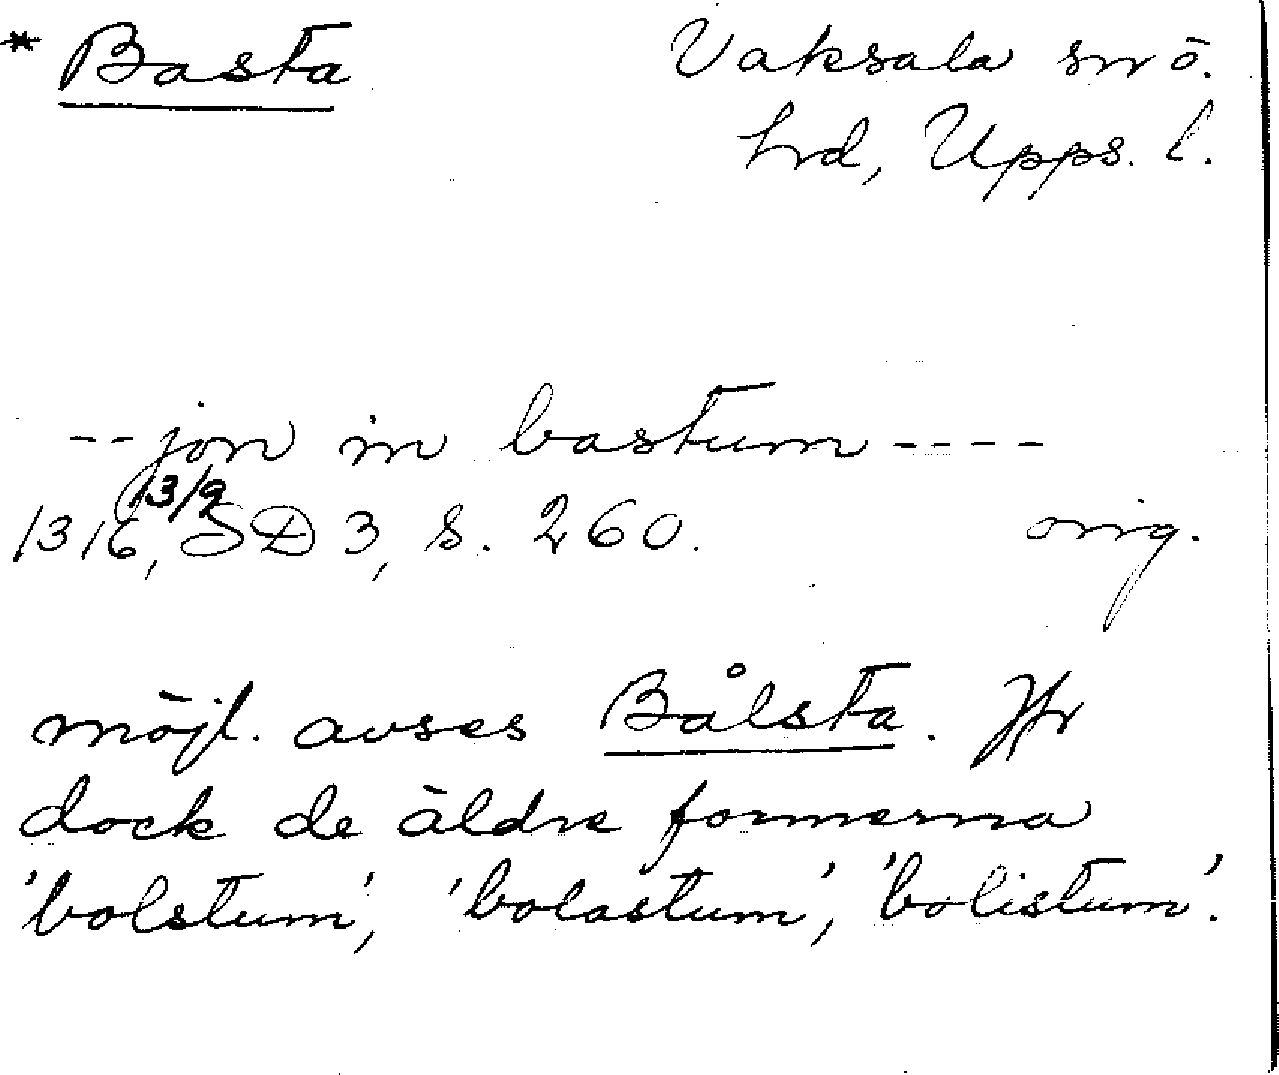 * Basta
Vaksala sn ö.
hd, Upps. l.
-- jon in bastum ----
1316 13/9, SD 3, s. 260. orig.
möjl. avses Bålsta. Jfr
dock de äldre formerna
'bolstum', 'bolastum', 'bolistum'.